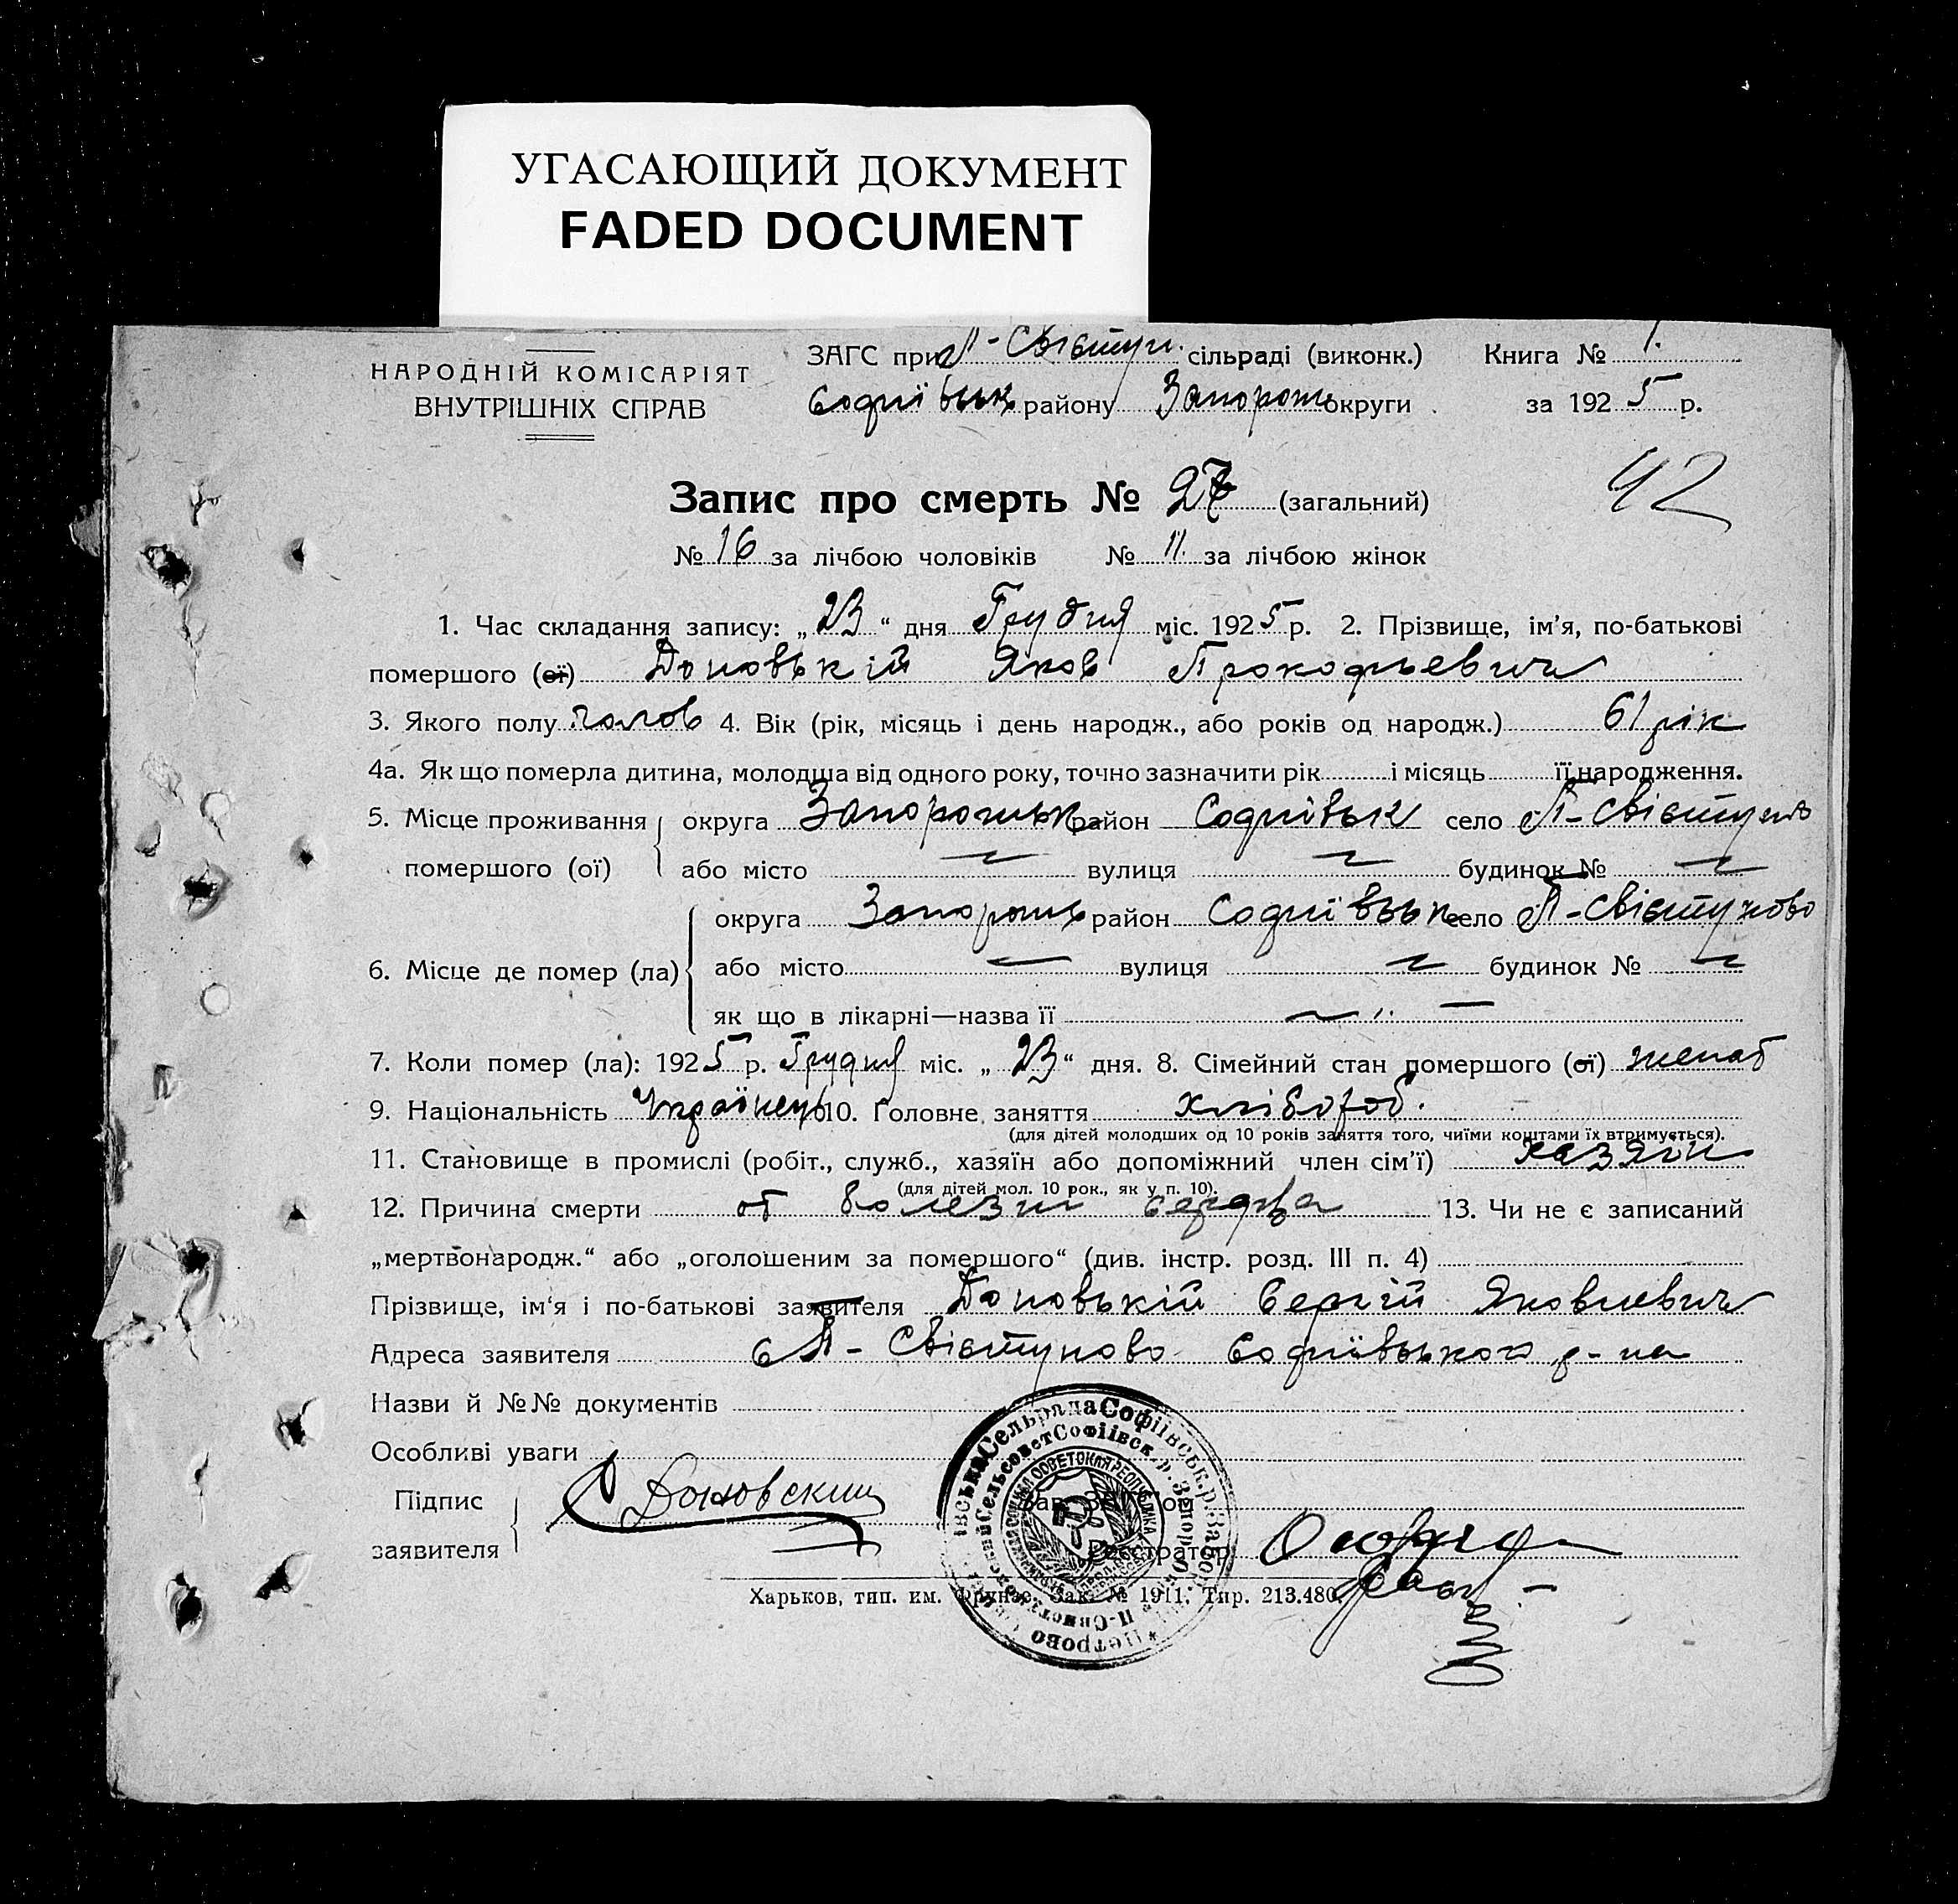 УГАСАЮЩИЙ ДОКУМЕНТ
FADED DOCUMENT
НАРОДНІЙ КОМІСАРІЯТ
ВНУТРІШНІХ СПРАВ
ЗАГС при П-Свістун. сільраді (виконк.) Книга № 1.
Софиївськ району Запорож округи за 1925 р.
42
Запис про смерть № 27 (загальний)
№ 16 за лічбою чоловіків № 11. за лічбою жінок
1. Час складання запису: „23“ дня Грудня міс. 1925 р. 2. Прізвище, ім’я, по-батькові
помершого (ої) Доновькій Яков Прокофьевич
3. Якого полу чолов 4. Вік (рік, місяць і день народж., або років од народж.) 61 рік
4а. Як що померла дитина, молодша від одного року, точно зазначити рік і місяць її народження.
5. Місце проживання округа Запорожськ район Софиівськ село П-Свістуново
помершого (ої) або місто вулиця будинок №
округа Запорожь район Софиївськ село П-Свістуново
6. Місце де помер (ла) або місто вулиця будинок №
як що в лікарні—назва її
7. Коли помер (ла): 1925 р. Грудня міс. „23“ дня. 8. Сімейний стан помершого (ої) женат
9. Національність Українець 10. Головне заняття хлібороб.
(для дітей молодших од 10 років заняття того, чиїми коштами їх втримується).
11. Становище в промислі (робіт., служб., хазяїн або допоміжний член сім’ї) хазяїн
(для дітей мол. 10 рок., як у п. 10).
12. Причина смерти от болезни сердца 13. Чи не є записаний
„мертвонародж.“ або „оголошеним за помершого“ (див. інстр. розд. III п. 4)
Прізвище, ім‘я і по-батькові заявителя Доновькій Сергій Яковлевич
Адреса заявителя с П-Свістуново Софиївського р-на
Назви й №№ документів
Особливі уваги
Підпис Доновский Зав. ЗАГСом
заявителя Реєстратор
Харьков, тип. им. Фрунзе. Зак. № 1911. Тир. 213.480.